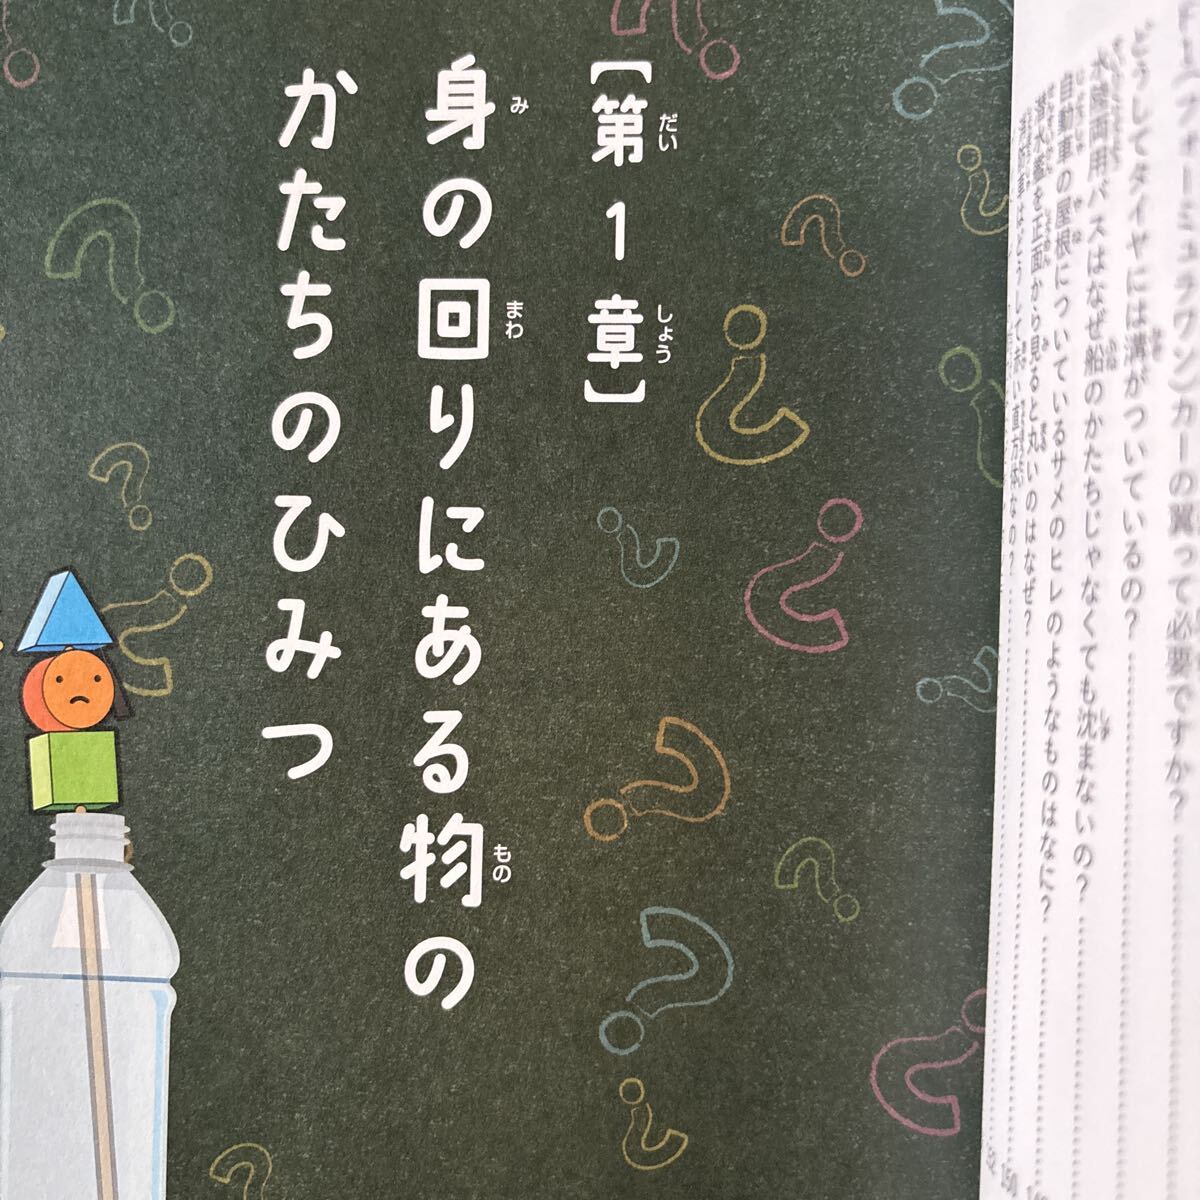 カーの翼って必要ですか？
どうしてタイヤには溝がついているの？
水陸両用バスはなぜ船のかたちじゃなくても沈まないの？
自動車の屋根についているサメのヒレのようなものはなに？
潜水艦を正面から見ると丸いのはなぜ？
はどうして赤い直方体なの？
【第1章】
だい
しょう
身の回りにある物の
み
まわ
もの
かたちのひみつ